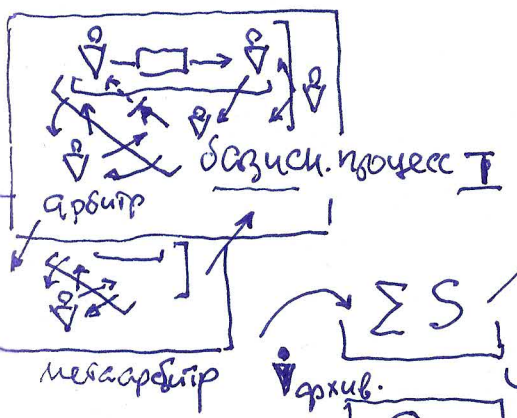 базисн. процесс I
арбитр
Σ S
метаарбитр
архив.